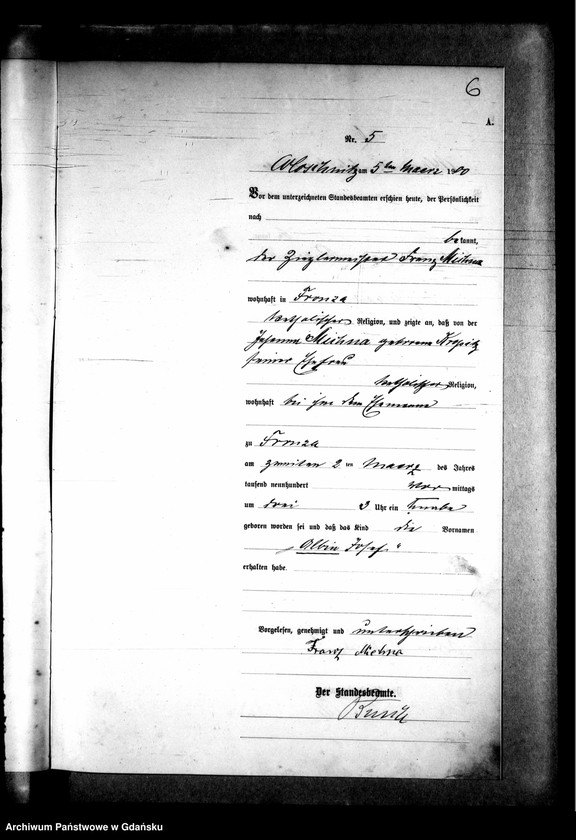 6
A.
Nr. 5
am 5ten Maerz 1900
Vor dem unterzeichneten Standesbeamten erschien heute, der Persönlichkeit
nach
bekannt,
der Zieglermeister Franz Michna
wohnhaft in Fronza
katholischer Religion, und zeigte an, daß von der
Johanna Michna geborene
seiner Ehefrau
katholischer Religion,
wohnhaft bei ihm dem Ehemanne
zu Fronza
am zweiten 2 ten Maerz des Jahres
tausend neunhundert Vor mittags
um drei 3 Uhr ein Knabe
geboren worden sei und daß das Kind die Vornamen
„Albin Josef“
erhalten habe.
Vorgelesen, genehmigt und unterschrieben
Franz Michna
Der Standesbeamte.
Archiwum Państwowe w Gdańsku